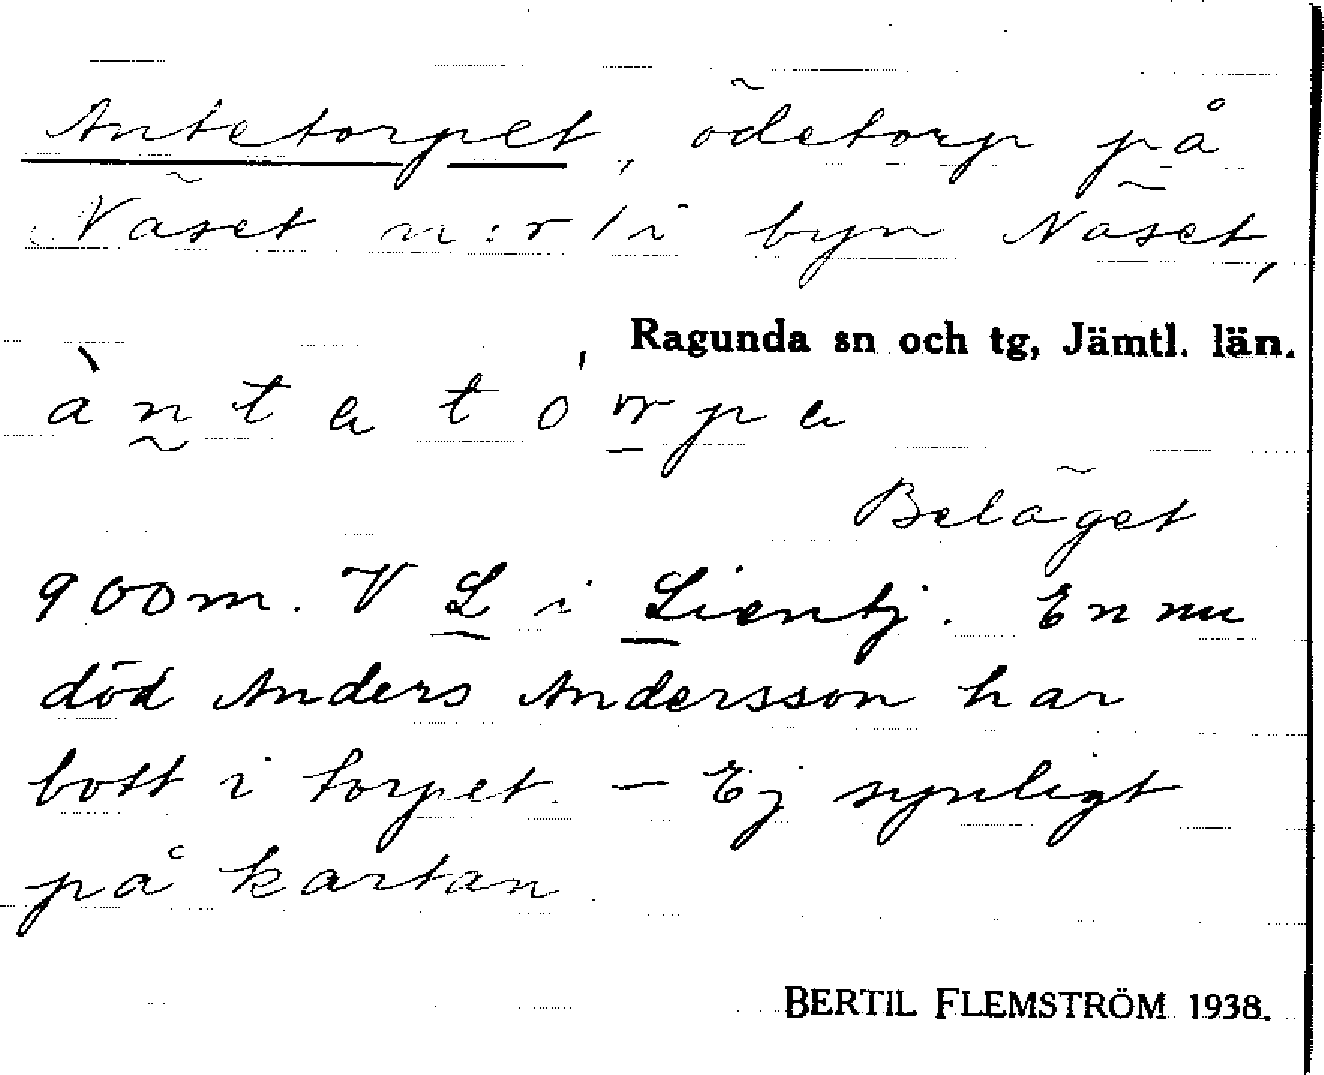 Antetorpet, ödetorp på
Näset n:r 1 i byn Näset,
Ragunda sn och tg, Jämtl. län.
Beläget
900 m. V L i Lientj. En nu
död Anders Andersson har
bott i torpet. – Ej synligt
på kartan.
BERTIL FLEMSTRÖM 1938.